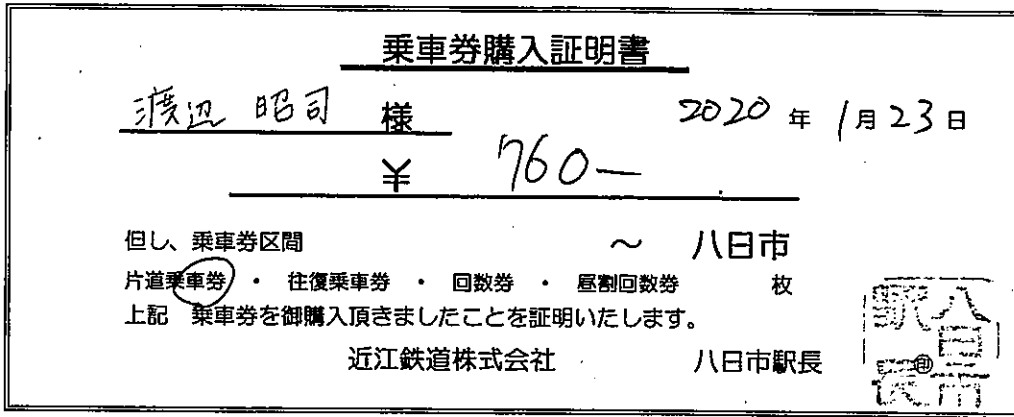 乗車券購入証明書
渡辺 昭司 様 2020 年 1月 23 日
¥ 760―
但し、乗車券区間 ～ 八日市
片道乗車券 ・ 往復乗車券 ・ 回数券 ・ 昼割回数券 枚
上記 乗車券を御購入頂きましたことを証明いたします。
近江鉄道株式会社 八日市駅長
八日市駅長㊞